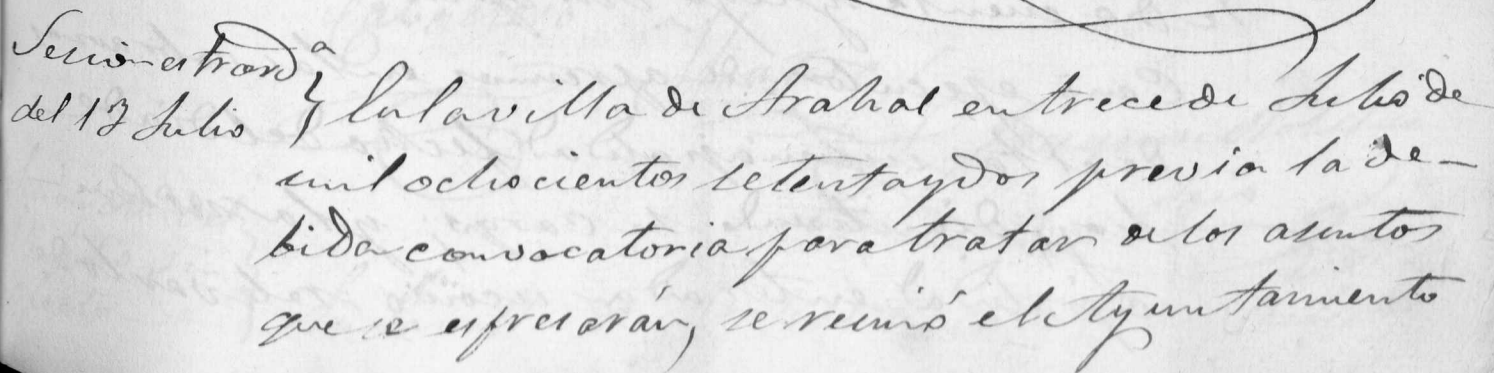 Sesion estrordª
del 13 Julio
En la villa de Arahal en trece de Julio de
mil ochocientos setenta y dos previa la de-
bida convocatoria para tratar de los asuntos
que se espresarán, se reunió el Ayuntamiento